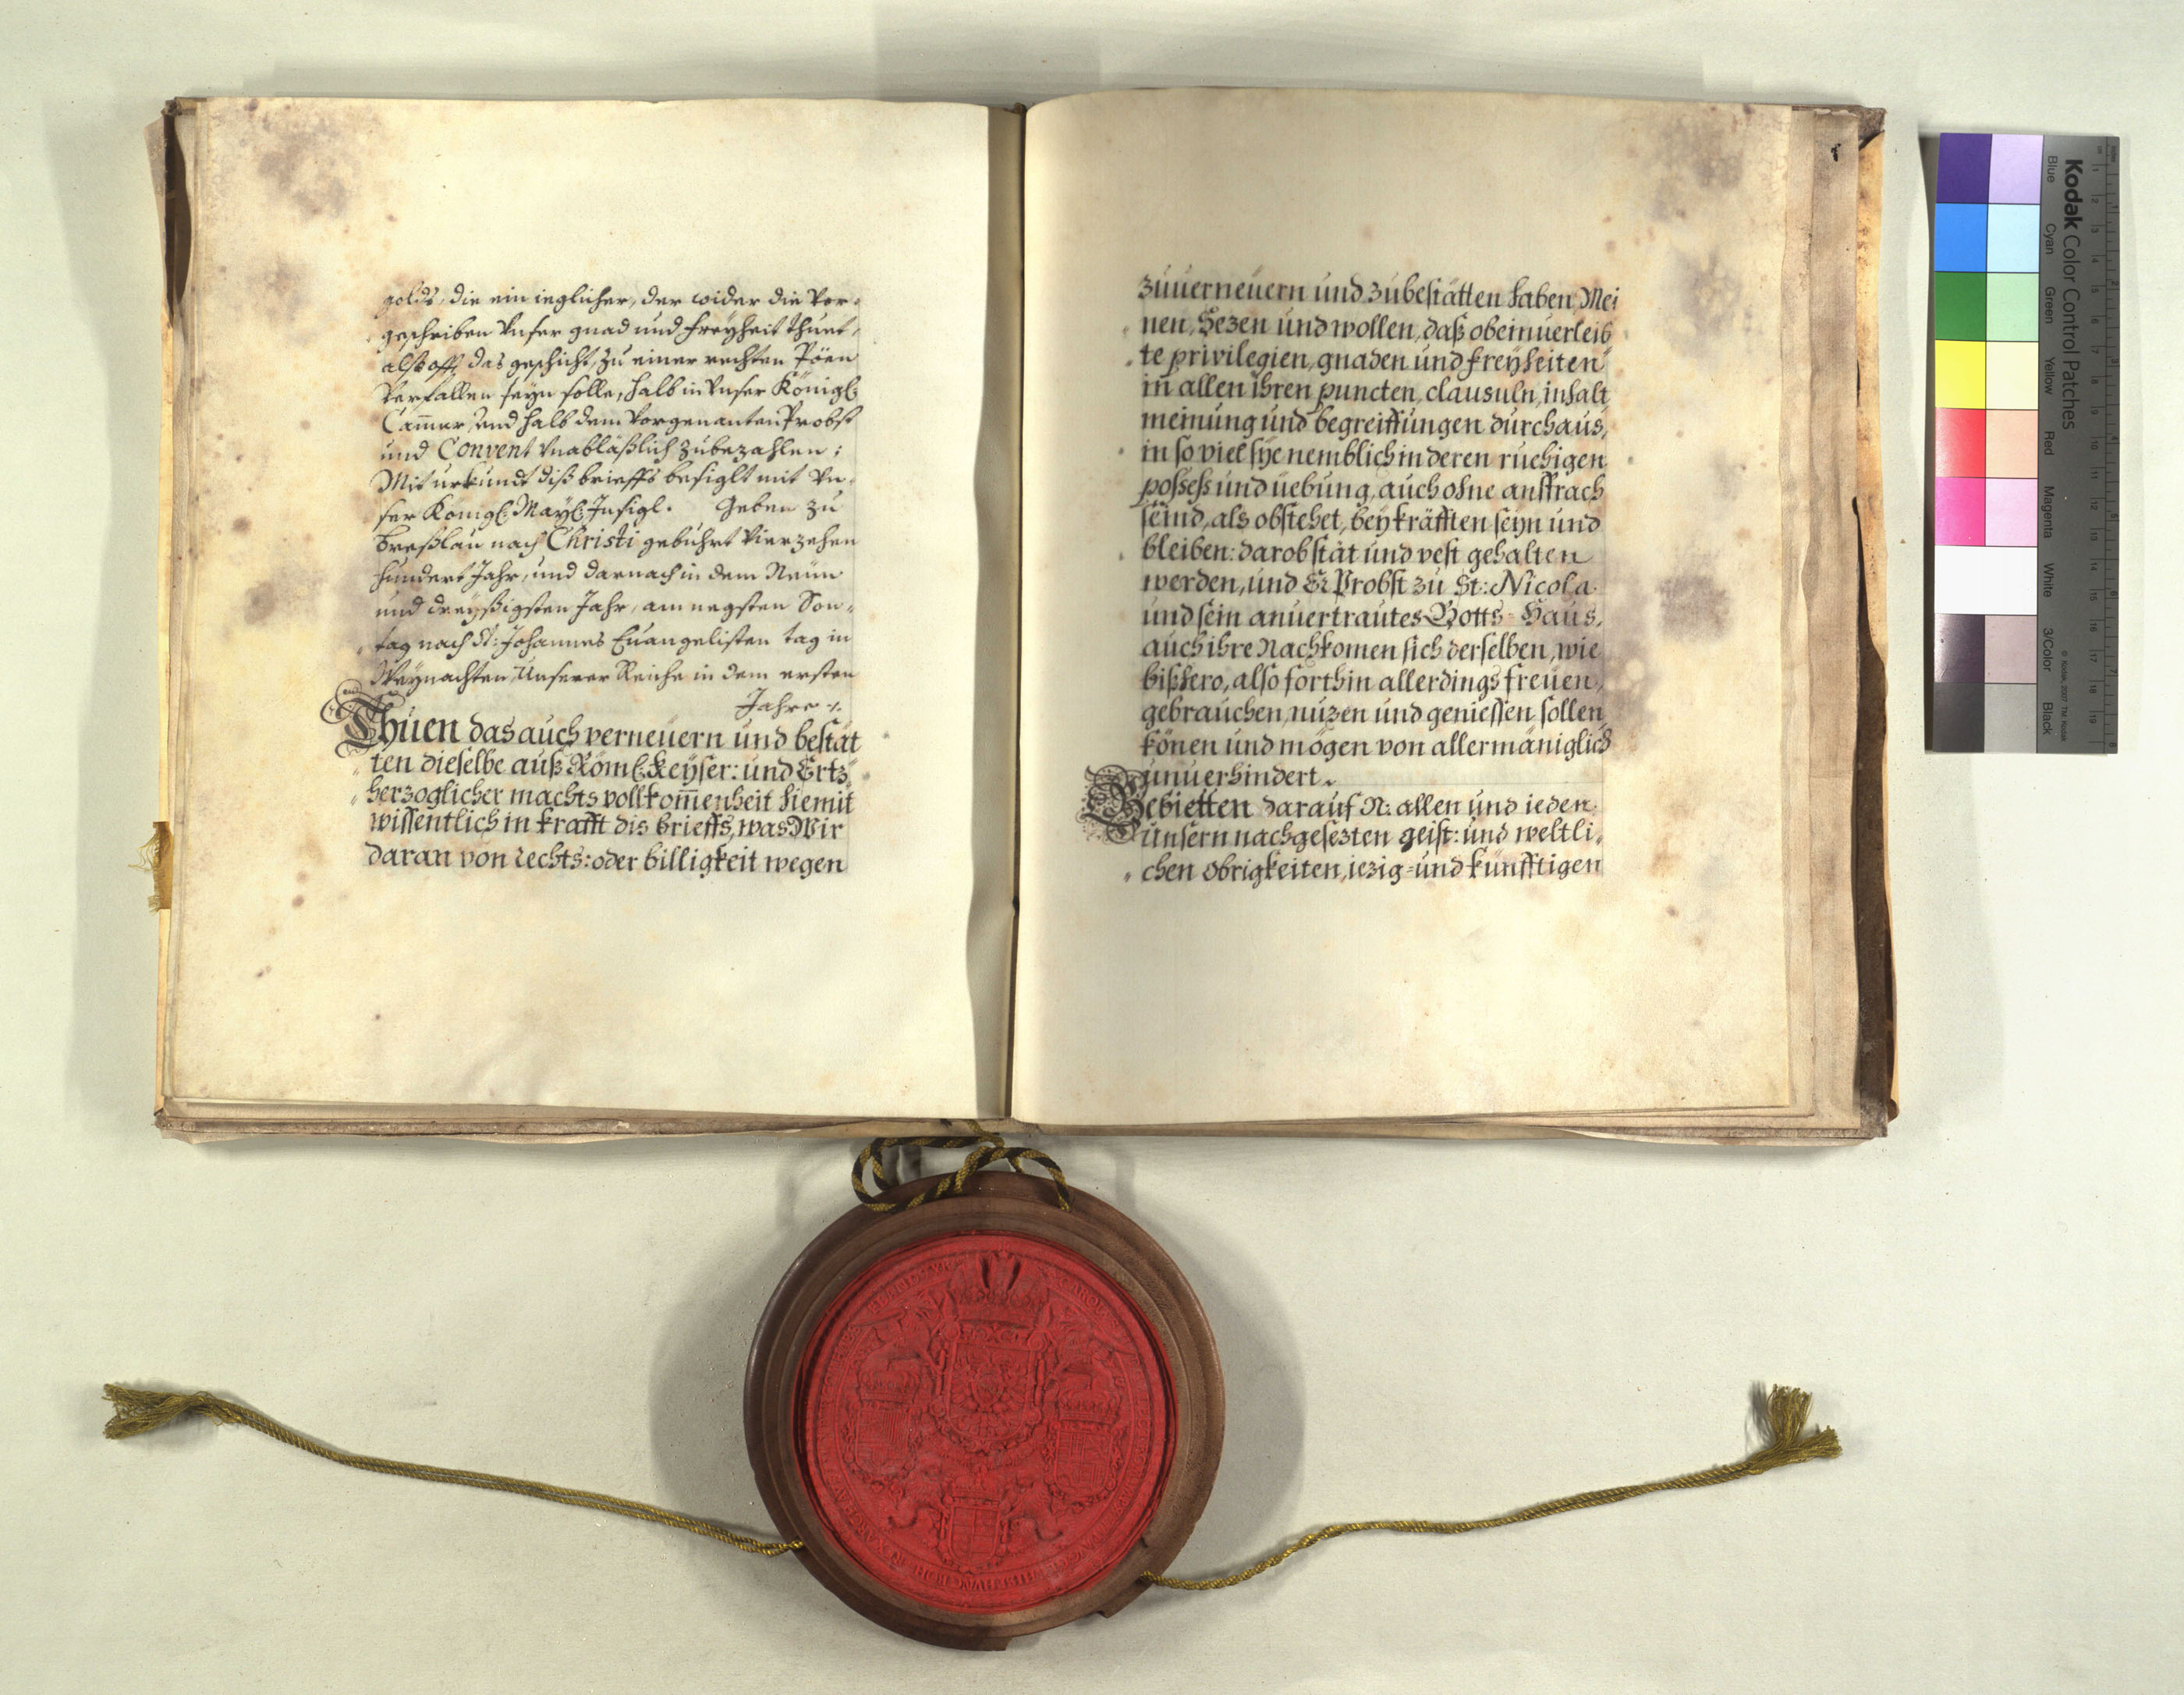 golds, die ein ieglicher, der wider die vor-
geschriben Vnser gnad und freyheit thuet,
alß offt das geschicht, zu einer rechten Pöen
Verfallen seyn solle, halb in Vnser Königl
Cam̄er, Und halb dem Vorgenanten Probst
und Convent Vnabläßlich zubezahlen:
Mit urkundt diß brieffs besiglt mit Vn-
ser Königl: Mayl: Insigl. Geben zu
Breßlau nach Christi gebührt Vierzehen
hundert Jahr, und darnach in dem Neün
und dreyßigsten Jahr, am negsten Son-
tag nach St: Johannes Euangelisten tag in
Weynachten, Unserer Reiche in dem ersten
Jahre
Thuen das auch verneuern und bestät
ten dieselbe auß Röml: Keyser: und Ertz
herzoglicher machts vollkom̄enheit hiemit
wissentlich in krafft dis brieffs, was Wir
daran von rechts: oder billigkeit wegen
zuuerneuern und zubestätten haben, Mei
nen, Sezen und wollen, daß obeinuerleib
te privilegien, gnaden und freyheiten
in allen ihren puncten, clausuln, inhalt
meinung und begreiffungen durchaus,
in so viel sye nemblich in deren ruehigen
possess und uebung, auch ohne ansprach
seind, als obstehet, bey kräfften seyn und
bleiben: darob stät und vest gehalten
werden, und Er Probst zu St: Nicola
und sein anuertrautes Gotts-Haus,
auch ihre Nachkomen sich derselben, wie
bißhero, also forthin allerdings freuen,
gebrauchen, nuzen und geniessen sollen
könen und mögen von allermäniglich
unuerhindert.
Gebietten darauf N: allen und ieden
unsern nachgesezten geist: und weltli-
chen obrigkeiten, iezig-und künfftigen
Kodak Color Control Patches
Blue Cyan Green Yellow Red Magenta White 3/Color Black
© Kodak, 2007 TM: Kodak